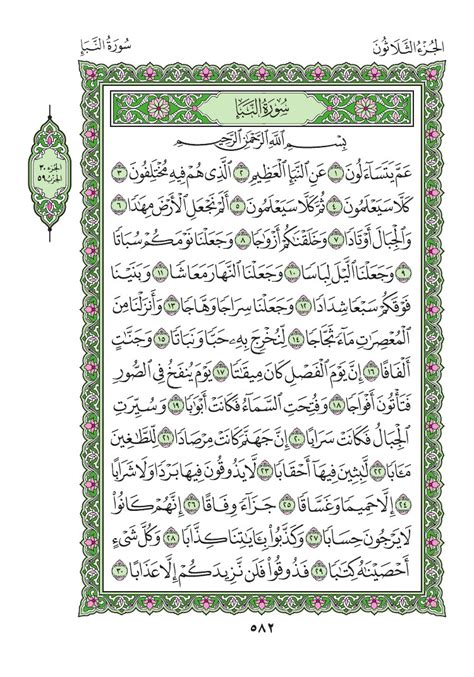 الجزء الثلاثون
سورة النبإ
سُورَةُ النَّبَإِ
بِسْمِ ٱللَّهِ ٱلرَّحْمَٰنِ ٱلرَّحِيمِ
الجزء ٣٠
الحزب ٥٩
عَمَّ يَتَسَآءَلُونَ ١ عَنِ ٱلنَّبَإِ ٱلْعَظِيمِ ٢ ٱلَّذِى هُمْ فِيهِ مُخْتَلِفُونَ ٣
كَلَّا سَيَعْلَمُونَ ٤ ثُمَّ كَلَّا سَيَعْلَمُونَ ٥ أَلَمْ نَجْعَلِ ٱلْأَرْضَ مِهَٰدًا ٦
وَٱلْجِبَالَ أَوْتَادًا ٧ وَخَلَقْنَٰكُمْ أَزْوَٰجًا ٨ وَجَعَلْنَا نَوْمَكُمْ سُبَاتًا
٩ وَجَعَلْنَا ٱلَّيْلَ لِبَاسًا ١٠ وَجَعَلْنَا ٱلنَّهَارَ مَعَاشًا ١١ وَبَنَيْنَا
فَوْقَكُمْ سَبْعًا شِدَادًا ١٢ وَجَعَلْنَا سِرَاجًا وَهَّاجًا ١٣ وَأَنزَلْنَا مِنَ
ٱلْمُعْصِرَٰتِ مَآءً ثَجَّاجًا ١٤ لِّنُخْرِجَ بِهِۦ حَبًّا وَنَبَاتًا ١٥ وَجَنَّٰتٍ
أَلْفَافًا ١٦ إِنَّ يَوْمَ ٱلْفَصْلِ كَانَ مِيقَٰتًا ١٧ يَوْمَ يُنفَخُ فِى ٱلصُّورِ
فَتَأْتُونَ أَفْوَاجًا ١٨ وَفُتِحَتِ ٱلسَّمَآءُ فَكَانَتْ أَبْوَٰبًا ١٩ وَسُيِّرَتِ
ٱلْجِبَالُ فَكَانَتْ سَرَابًا ٢٠ إِنَّ جَهَنَّمَ كَانَتْ مِرْصَادًا ٢١ لِّلطَّٰغِينَ
مَـَٔابًا ٢٢ لَّٰبِثِينَ فِيهَآ أَحْقَابًا ٢٣ لَّا يَذُوقُونَ فِيهَا بَرْدًا وَلَا شَرَابًا
٢٤ إِلَّا حَمِيمًا وَغَسَّاقًا ٢٥ جَزَآءً وِفَاقًا ٢٦ إِنَّهُمْ كَانُوا۟
لَا يَرْجُونَ حِسَابًا ٢٧ وَكَذَّبُوا۟ بِـَٔايَٰتِنَا كِذَّابًا ٢٨ وَكُلَّ شَىْءٍ
أَحْصَيْنَٰهُ كِتَٰبًا ٢٩ فَذُوقُوا۟ فَلَن نَّزِيدَكُمْ إِلَّا عَذَابًا ٣٠
٥٨٢